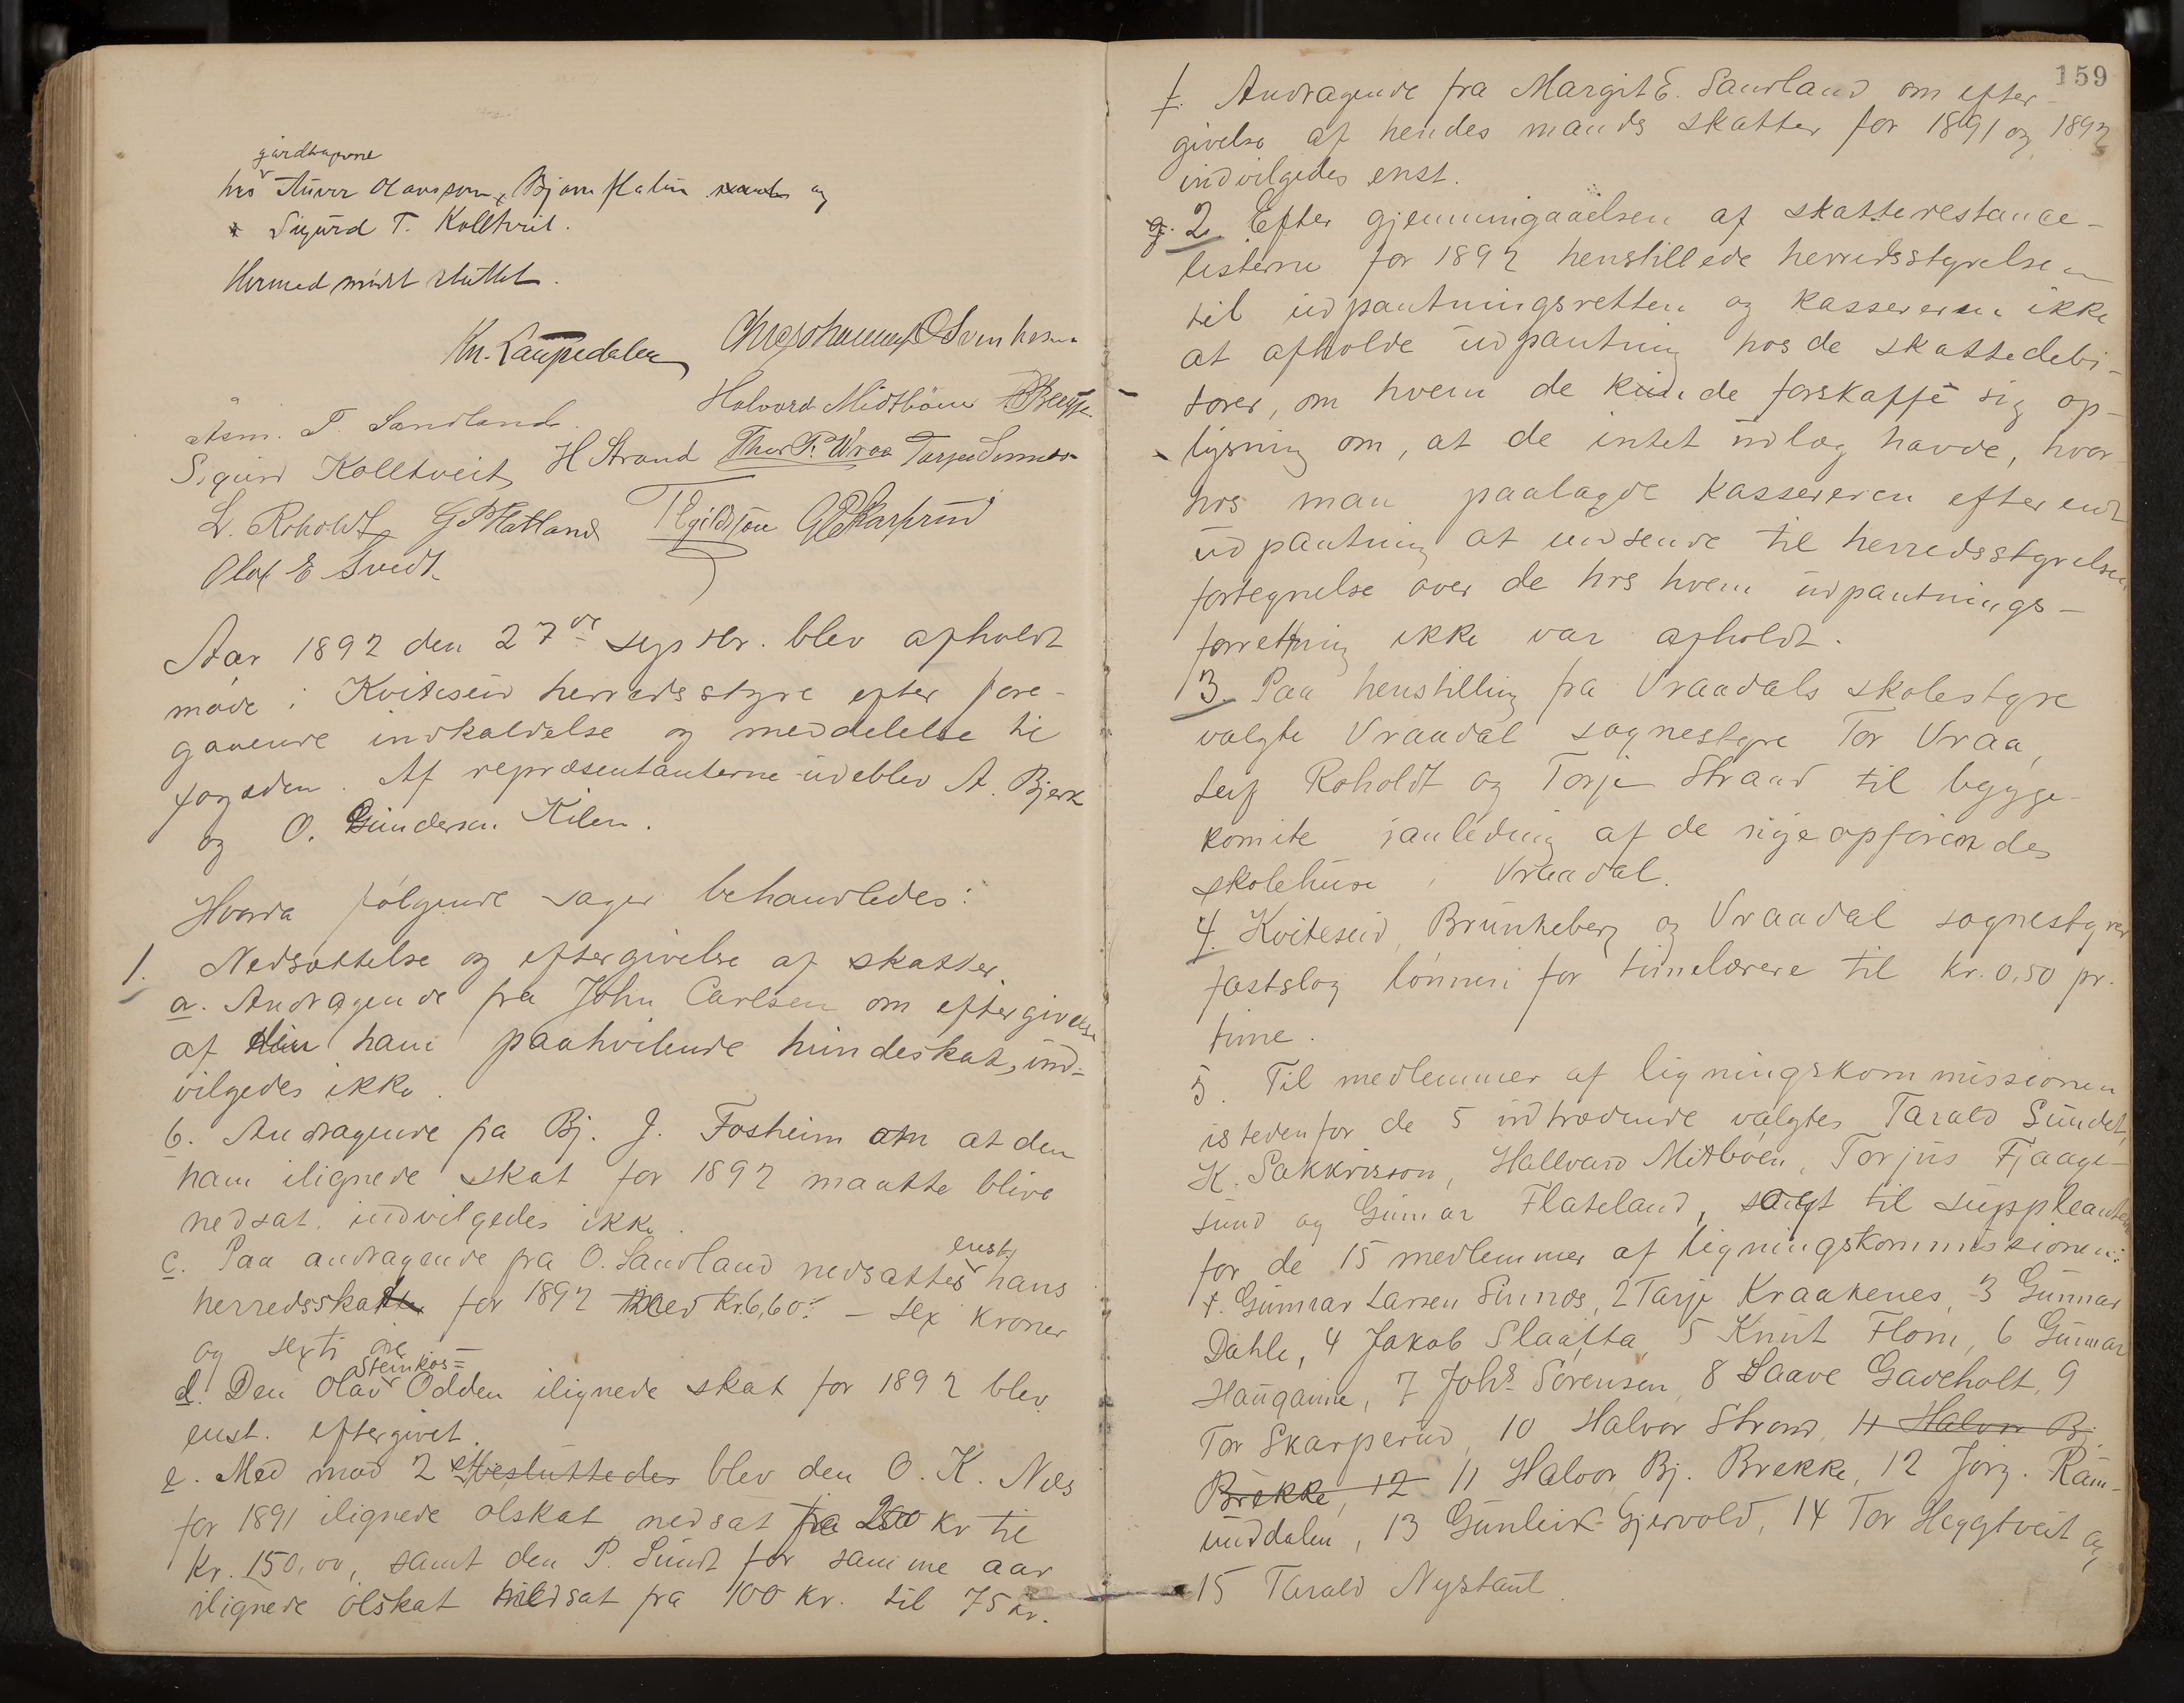 gardtagerne
hos Anver Olavson, Bjorn Hatun og
Sigurd T. Kolltveit.
Hermed mødet sluttet.
Kn. Laupedalen
Halvord Midtbøen
Asm. T. Sandland
Sigurd Kolltveit H Strand Thor T. Wraa
L. Roholdt G P Flatland T Egildsson G O Skarprud
Olaf E Sundt
Aar 1892 den 27de septbr. blev afholdt
møde i Kviteseid herredsstyre efter fore-
gaaende indkaldelse og meddelelse til
fogden. Af repræsentanterne udeblev A. Bjerk
og O. Gundersen Kilen.
Hvorda følgende sager behandledes:
1. Nedsættelse og eftergivelse af skatter
a. Andragende fra John Carlsen om eftergivelse
af den ham paahvilende hundeskat, ind-
vilgedes ikke.
b. Andragende fra Bj. J. Fosheim om at den
ham ilignede skat for 1892 maatte blive
nedsat, indvilgedes ikke.
enst.
c. Paa andragende fra O. Sandland nedsattes hans
herredsskat for 1892 med Kr. 6,60: — sex kroner
og sexti øre
Steinkos=
d. Den Olav Odden ilignede skat for 1892 blev
enst. eftergivet.
e. Med mod 2 st. besluttedes blev den O. K. Næs
for 1891 ilignede ølskat nedsat fra 200 kr til
Kr. 150,00, samt den P. Sundt for samme aar
ilignede ølskat nedsat fra 100 kr. til 75 kr.
159
f. Andragende fra Margit E. Sandland om efter-
givelse af hendes mands skatter for 1891 og 1892
indvilgedes enst.
g. 2. Efter gjennemgaaelsen af skatterestance-
listerne for 1892 henstillede herredsstyrelsen
til udpantningsretten og kassereren ikke
at afholde udpantning hos de skattedebi-
torer, om hvem de kunde forskaffe sig op-
lysning om, at de intet udlæg havde, hvor-
hos man paalagde kassereren efter endt
udpantning at indsende til herredsstyrelsen
fortegnelse over de hos hvem udpantnings-
forretning ikke var afholdt.
3. Paa henstilling fra Vraadals skolestyre
valgte Vraadal sognestyre Tor Vraa,
Leif Roholdt og Torje Strand til bygge-
komite i anledning af de nye opførendes
skolehuse i Vraadal.
4. Kviteseid, Brunkeberg og Vraadal sognestyrer
fastslog lønnen for timelærere til kr. 0,50 pr.
time.
5. Til medlemmer af ligningskommissionen
istedenfor de 5 udtrædende valgtes Tarald Sundet,
K. Sakkrisson, Hallvard Mitbøen, Torjus Fjaage-
sund og Gunnar Flateland, samt til suppleanter
for de 15 medlemmer af ligningskommissionen:
1. Gunnar Larsen Sinnos, 2 Tarje Kraakenes, 3 Gunnar
Dahle, 4 Jakob Slaatta, 5 Knut Flom, 6 Gunnar
Haugann, 7 Johs. Sørensen, 8 Saave Gaveholt, 9
Tor Skarperud, 10 Halvor Strand, 11 Halvor Bj.
Brekke, 12 11 Halvor Bj. Brekke, 12 Jørg. Ram-
unddalen, 13 Gunleik Gjervold, 14 Tor Heggtveit og
15 Tarald Nystaul